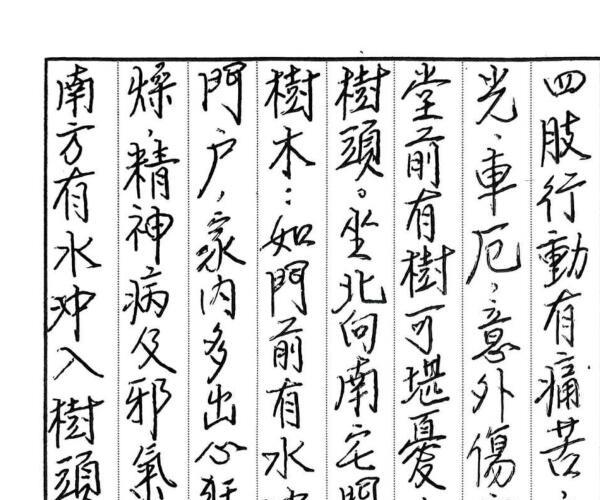 四肢行動有痛苦
光、車厄，意外傷
堂前有樹可堪憂
樹頭。坐北向南宅門
樹木：如門前有水
門戶，家內多出心狂
燥，精神病及邪氣
南方有水沖入樹頭